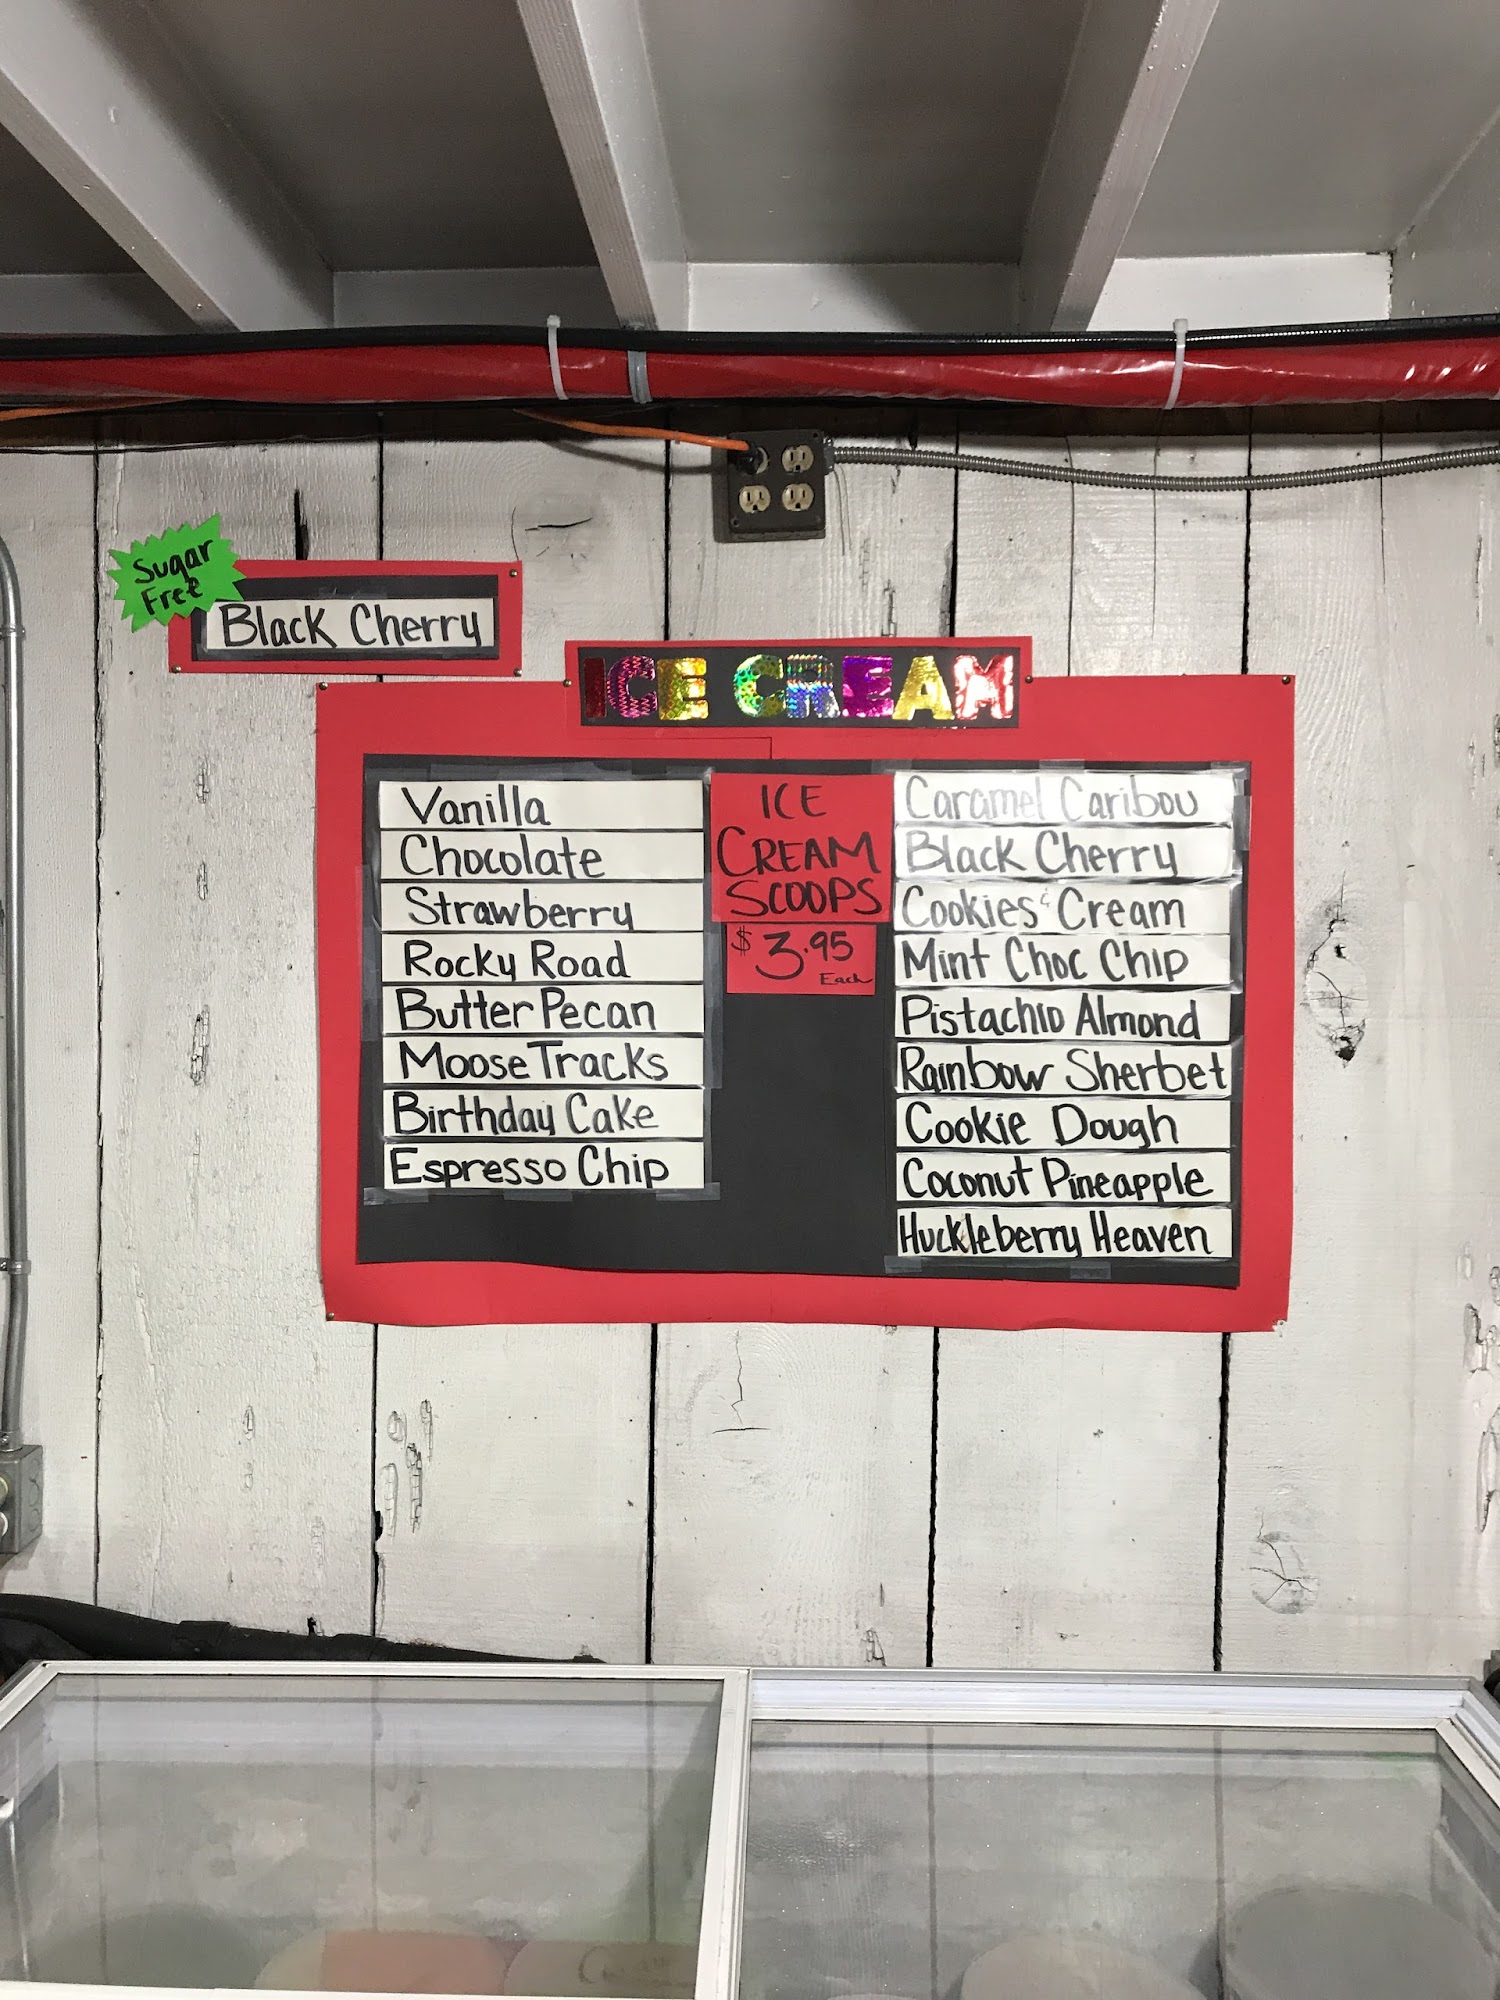 Sugar
Free
Black Cherry
ICE CREAM
Vanilla
Chocolate
Strawberry
Rocky Road
Butter Pecan
Moose Tracks
Birthday Cake
Espresso Chip
ICE
CREAM
SCOOPS
$3.95
Each
Caramel Caribou
Black Cherry
Cookies & Cream
Mint Choc Chip
Pistachio Almond
Rainbow Sherbet
Cookie Dough
Coconut Pineapple
Huckleberry Heaven